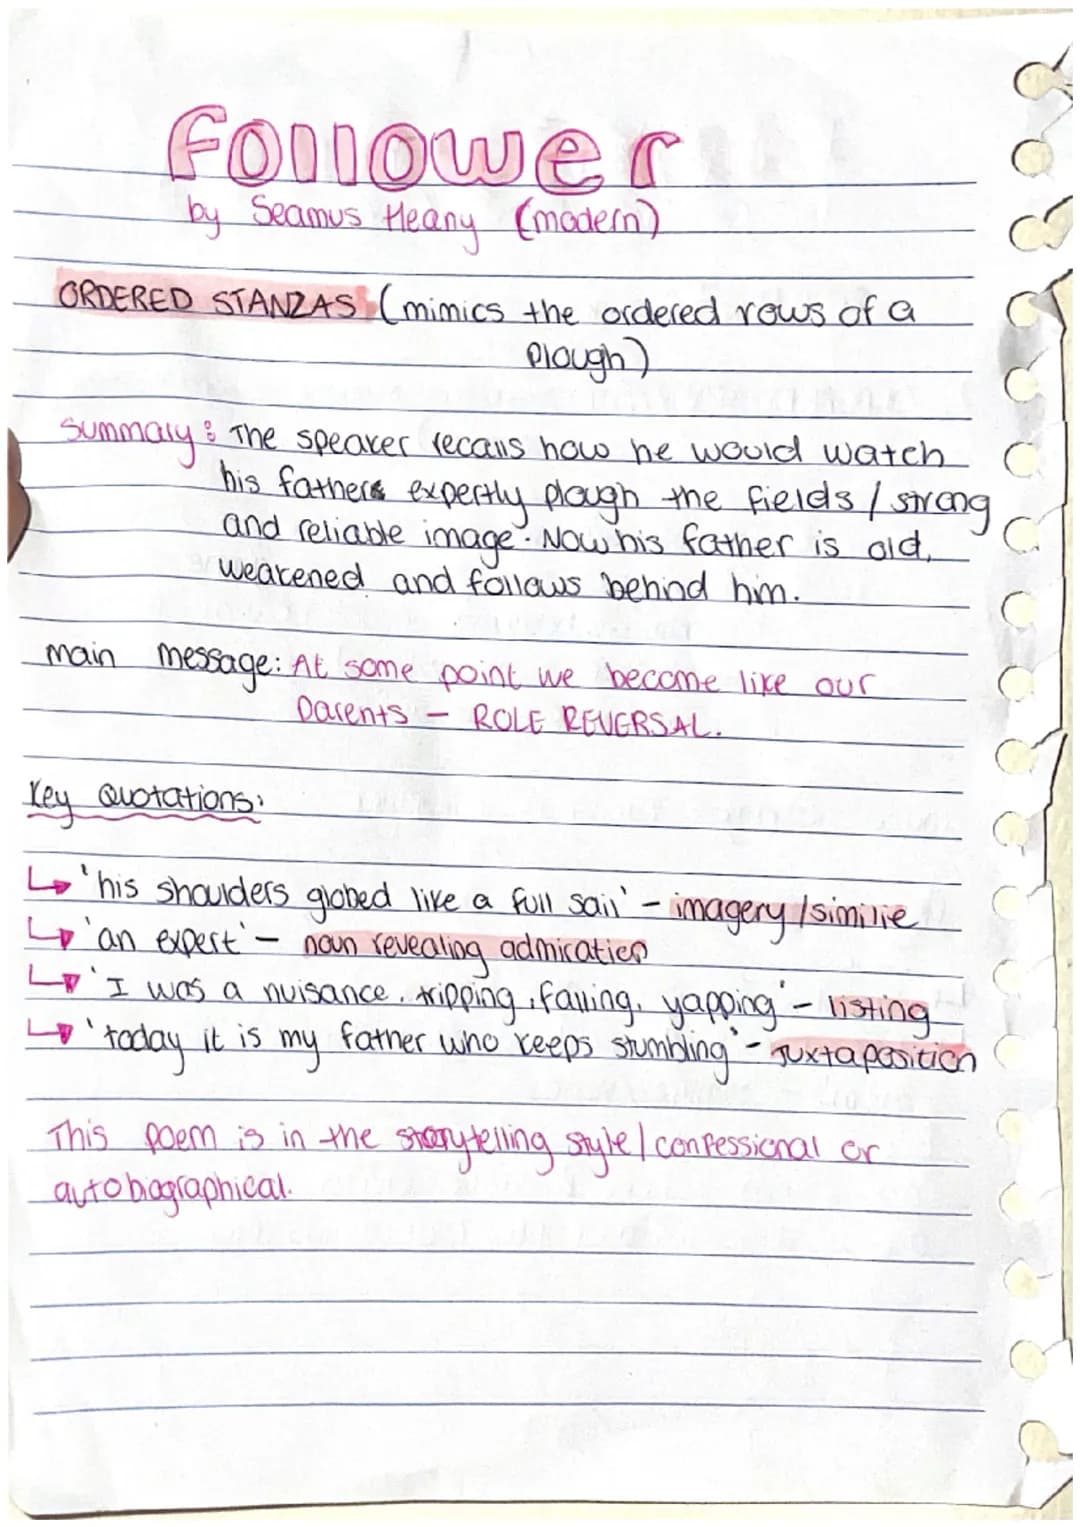 Follower
by Seamus Heany (modern)
ORDERED STANZAS (mimics the ordered rows of a
plough)
Summary: The speaker recalls how he would watch
his fathers expertly plough the fields / strong
and reliable image. Now his father is old,
weakened and follows behind him.
main message: At some point we become like our
Parents - ROLE REVERSAL.
Key Quotations:
↳ 'his shoulders globed like a full sail' - imagery/similie
↳ 'an expert' - noun revealing admiration
↳ 'I was a nuisance, tripping, falling, yapping' - listing
↳ 'today it is my father who keeps stumbling' - Juxtaposition
This poem is in the storytelling style / confessional or
autobiographical.